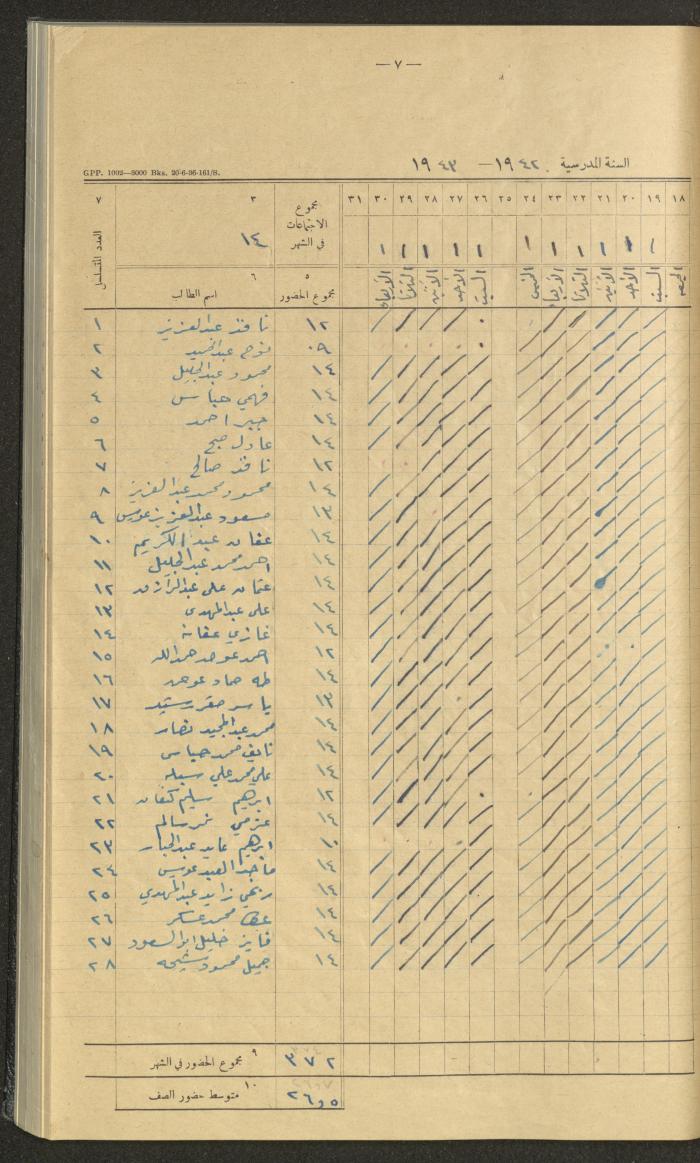 — ٧ —
السنة المدرسية ١٩٤٢ — ١٩٤٣
GPP. 1002—8000 Bks. 20-6-36-161/S.
١٨ ١٩ ٢٠ ٢١ ٢٢ ٢٣ ٢٤ ٢٥ ٢٦ ٢٧ ٢٨ ٢٩ ٣٠ ٣١ مجموع الاجتماعات في الشهر ٣ ٧
١ ١ ١ ١ ١ ١ ١ ١ ١ ١ ١ ١٤ العدد المتسلسل
الخميس السبت الاحد الاثنين الثلاثا الاربعاء الخميس السبت الاحد الاثنين الثلاثا الاربعاء ٥ مجموع الحضور ٦ اسم الطالب
١٢ نافذ عبد العزيز ١
٠٩ عبد الحميد ٢
١٤ محمود عبد الجليل ٣
١٤ فهمي عباس ٤
١٤ جبر احمد ٥
١٤ عادل صبح ٦
١٢ نافذ صالح ٧
١٤ محمود محمد عبد العزيز ٨
١٣ مسعود عبد العزيز عويس ٩
١٤ عفان عبد الكريم ١٠
١٤ احمد محمد عبد الجليل ١١
١٤ عثمان علي عبد الرازق ١٢
١٤ علي عبد المهدي ١٣
١٤ غازي عفانة ١٤
١٢ احمد عوض حمدالله ١٥
١٤ طه حماد عوض ١٦
١٣ ياسر صقر رشيد ١٧
١٤ محمد عبد المجيد نصار ١٨
١٤ نايف محمد عباس ١٩
١٤ علي محمد علي ٢٠
١٢ ابرهيم سليم كنعان ٢١
١٤ عزمي نمر سالم ٢٢
١٠ ابرهيم عايد عبد الجبار ٢٣
١٤ ماجد العبد عويس ٢٤
١٤ ربحي زايد عبد المهدي ٢٥
١٤ عطا محمد عسكر ٢٦
١٤ فايز خليل ابو السعود ٢٧
١٤ جميل محمود شيحه ٢٨
٣٧٢ ٩ مجموع الحضور في الشهر
٢٦٫٥ ١٠ متوسط حضور الصف